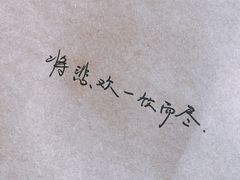 将悲欢一饮而尽.